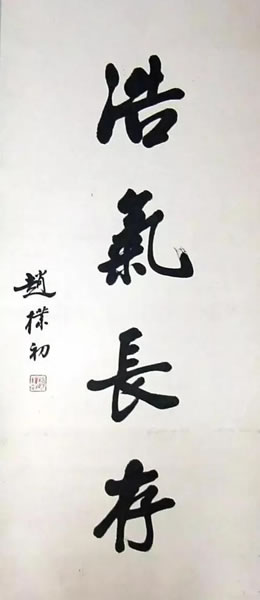 浩氣長存
趙樸初